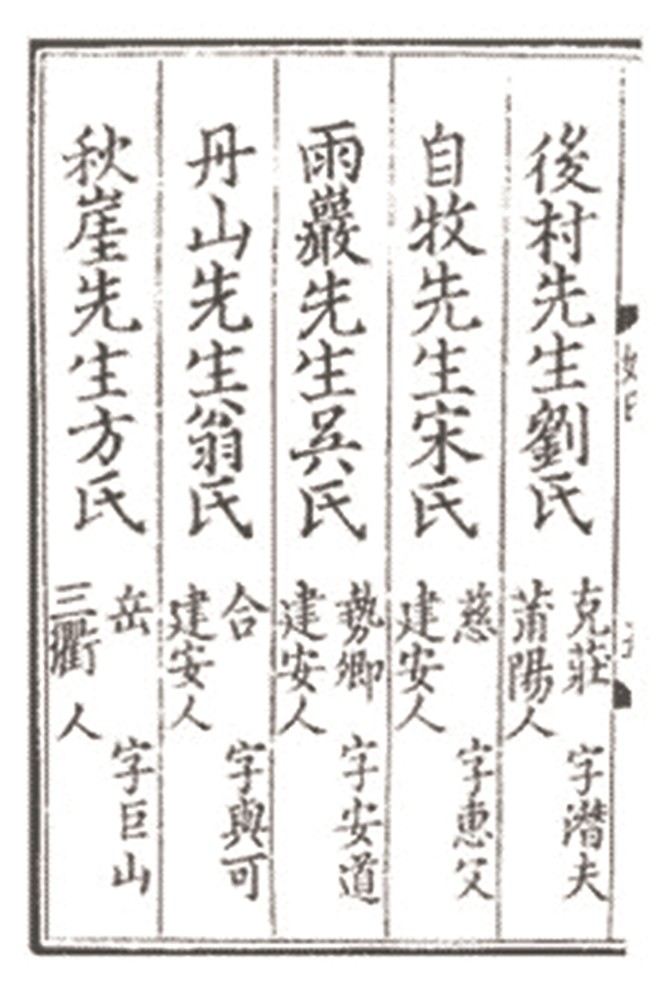 後村先生劉氏
克莊 字潛夫
莆陽人
自牧先生宋氏
慈 字惠父
建安人
雨巖先生吳氏
勢卿 字安道
建安人
丹山先生翁氏
合 字與可
建安人
秋崖先生方氏
岳 字巨山
三衢人